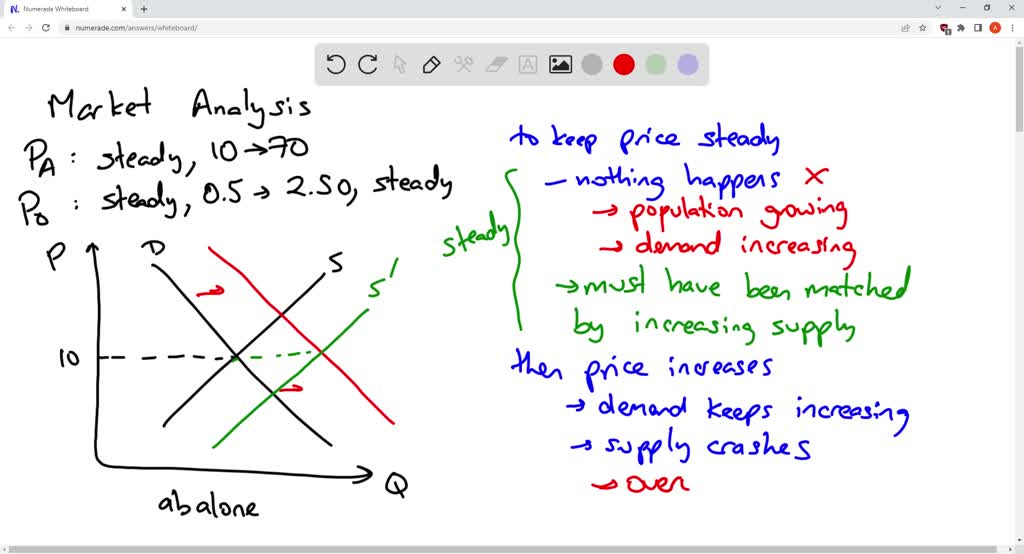 Numerade Whiteboard
numerade.com/answers/whiteboard/
A
A
Market Analysis
PA : steady, 10 → 70
: steady, 0.5 → 2.50, steady
P
D
S
S'
10
Q
abalone
steady
to keep price steady
- nothing happens X
→ population growing
→ demand increasing
→ must have been matched
by increasing supply
then price increases
→ demand keeps increasing
→ supply crashes
→ over